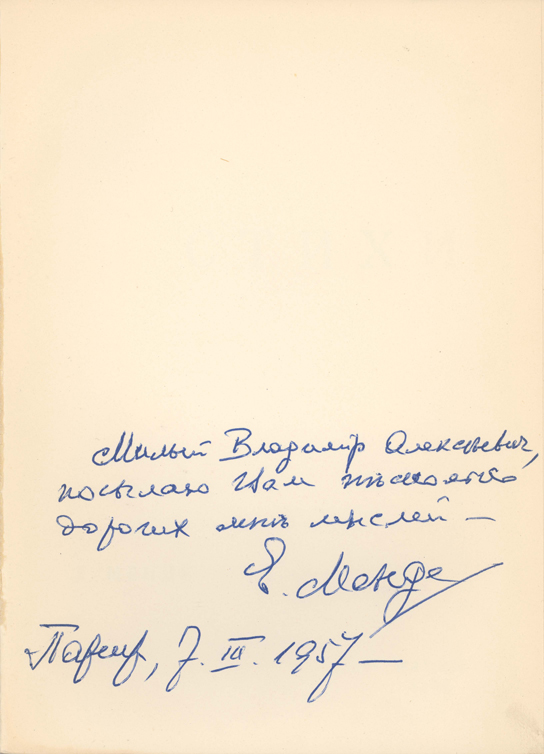 Милый Владимир Алексѣевич,
посылаю Вам нѣсколько
дорогих мнѣ мыслей —
Е. Менде
Париж, 7. III. 1957 —